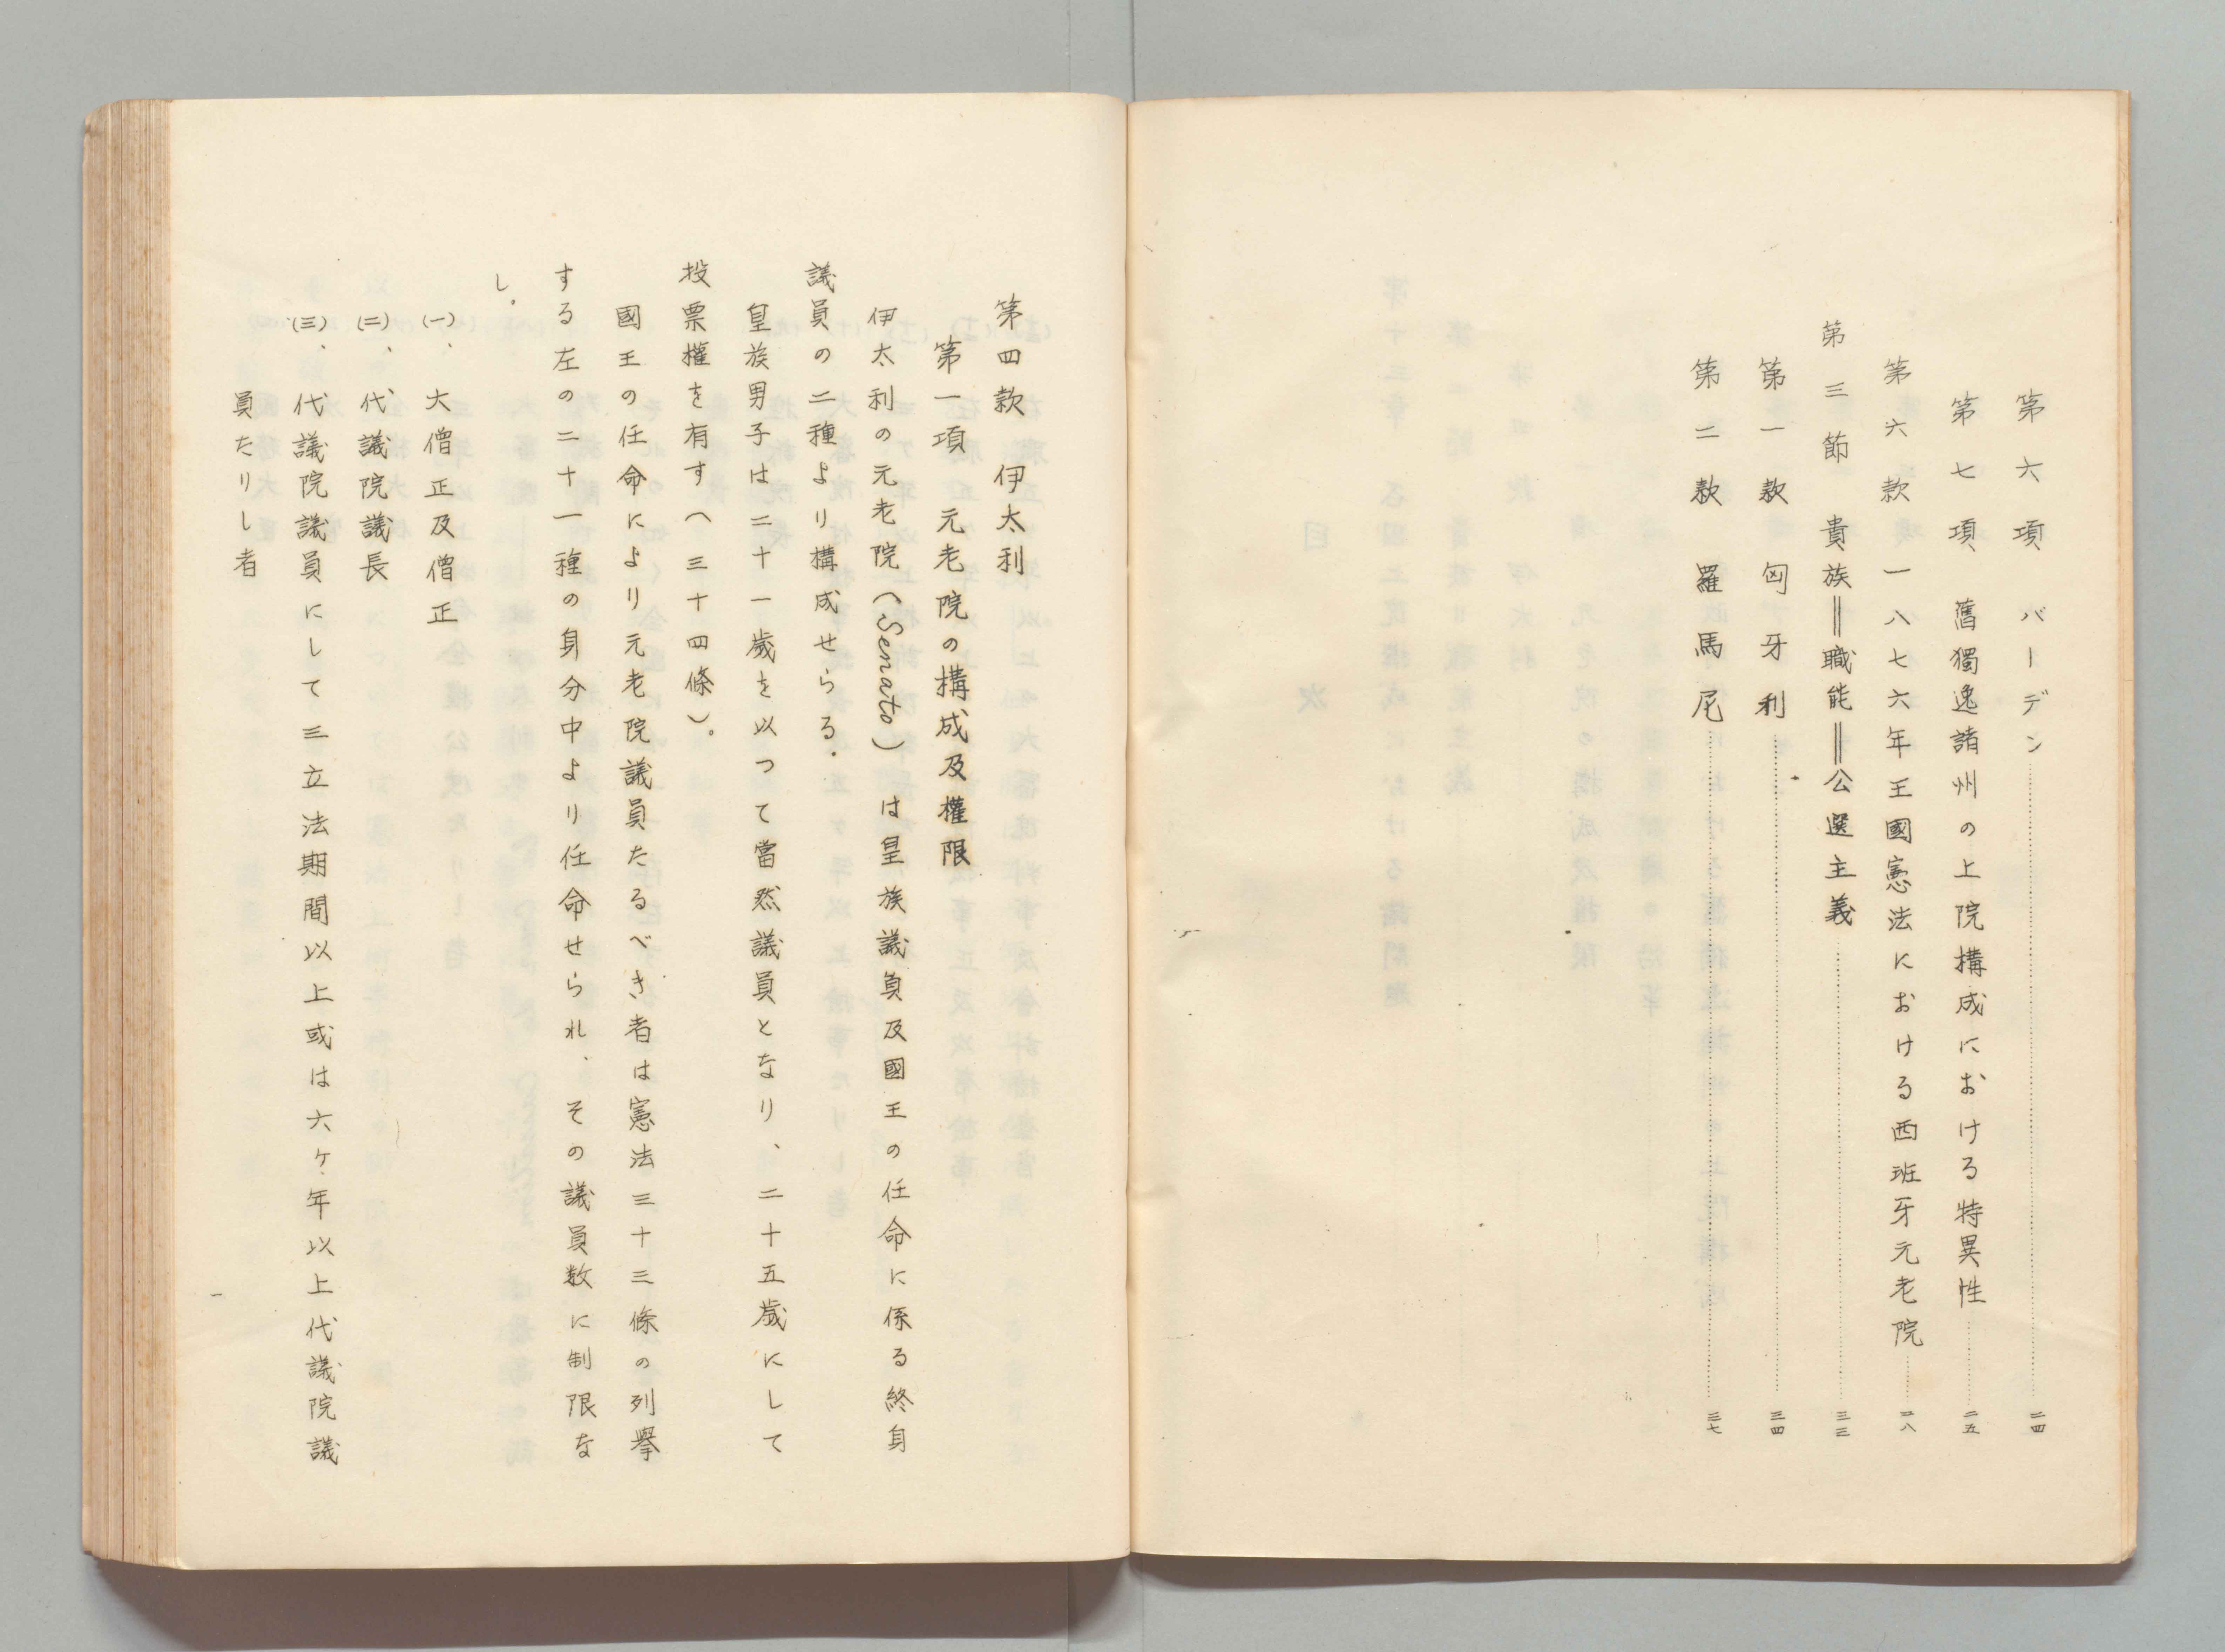 第六項 バーデン………二四
第七項 舊獨逸諸州の上院構成における特異性………二五
第六款 一八七六年王國憲法における西班牙元老院………二八
第三節 貴族‖職能‖公選主義………三三
第一款 匈牙利………三四
第二款 羅馬尼………三七
第四款 伊太利
第一項 元老院の構成及權限
伊太利の元老院(Senato)は皇族議員及國王の任命に係る終身
議員の二種より構成せらる.
皇族男子は二十一歲を以つて當然議員となり、二十五歲にして
投票權を有す(三十四條)。
國王の任命により元老院議員たるべき者は憲法三十三條の列擧
する左の二十一種の身分中より任命せられ、その議員数に制限な
し。
(一)、大僧正及僧正
(二)、代議院議長
(三)、代議院議員にして三立法期間以上或は六ケ年以上代議院議
員たりし者